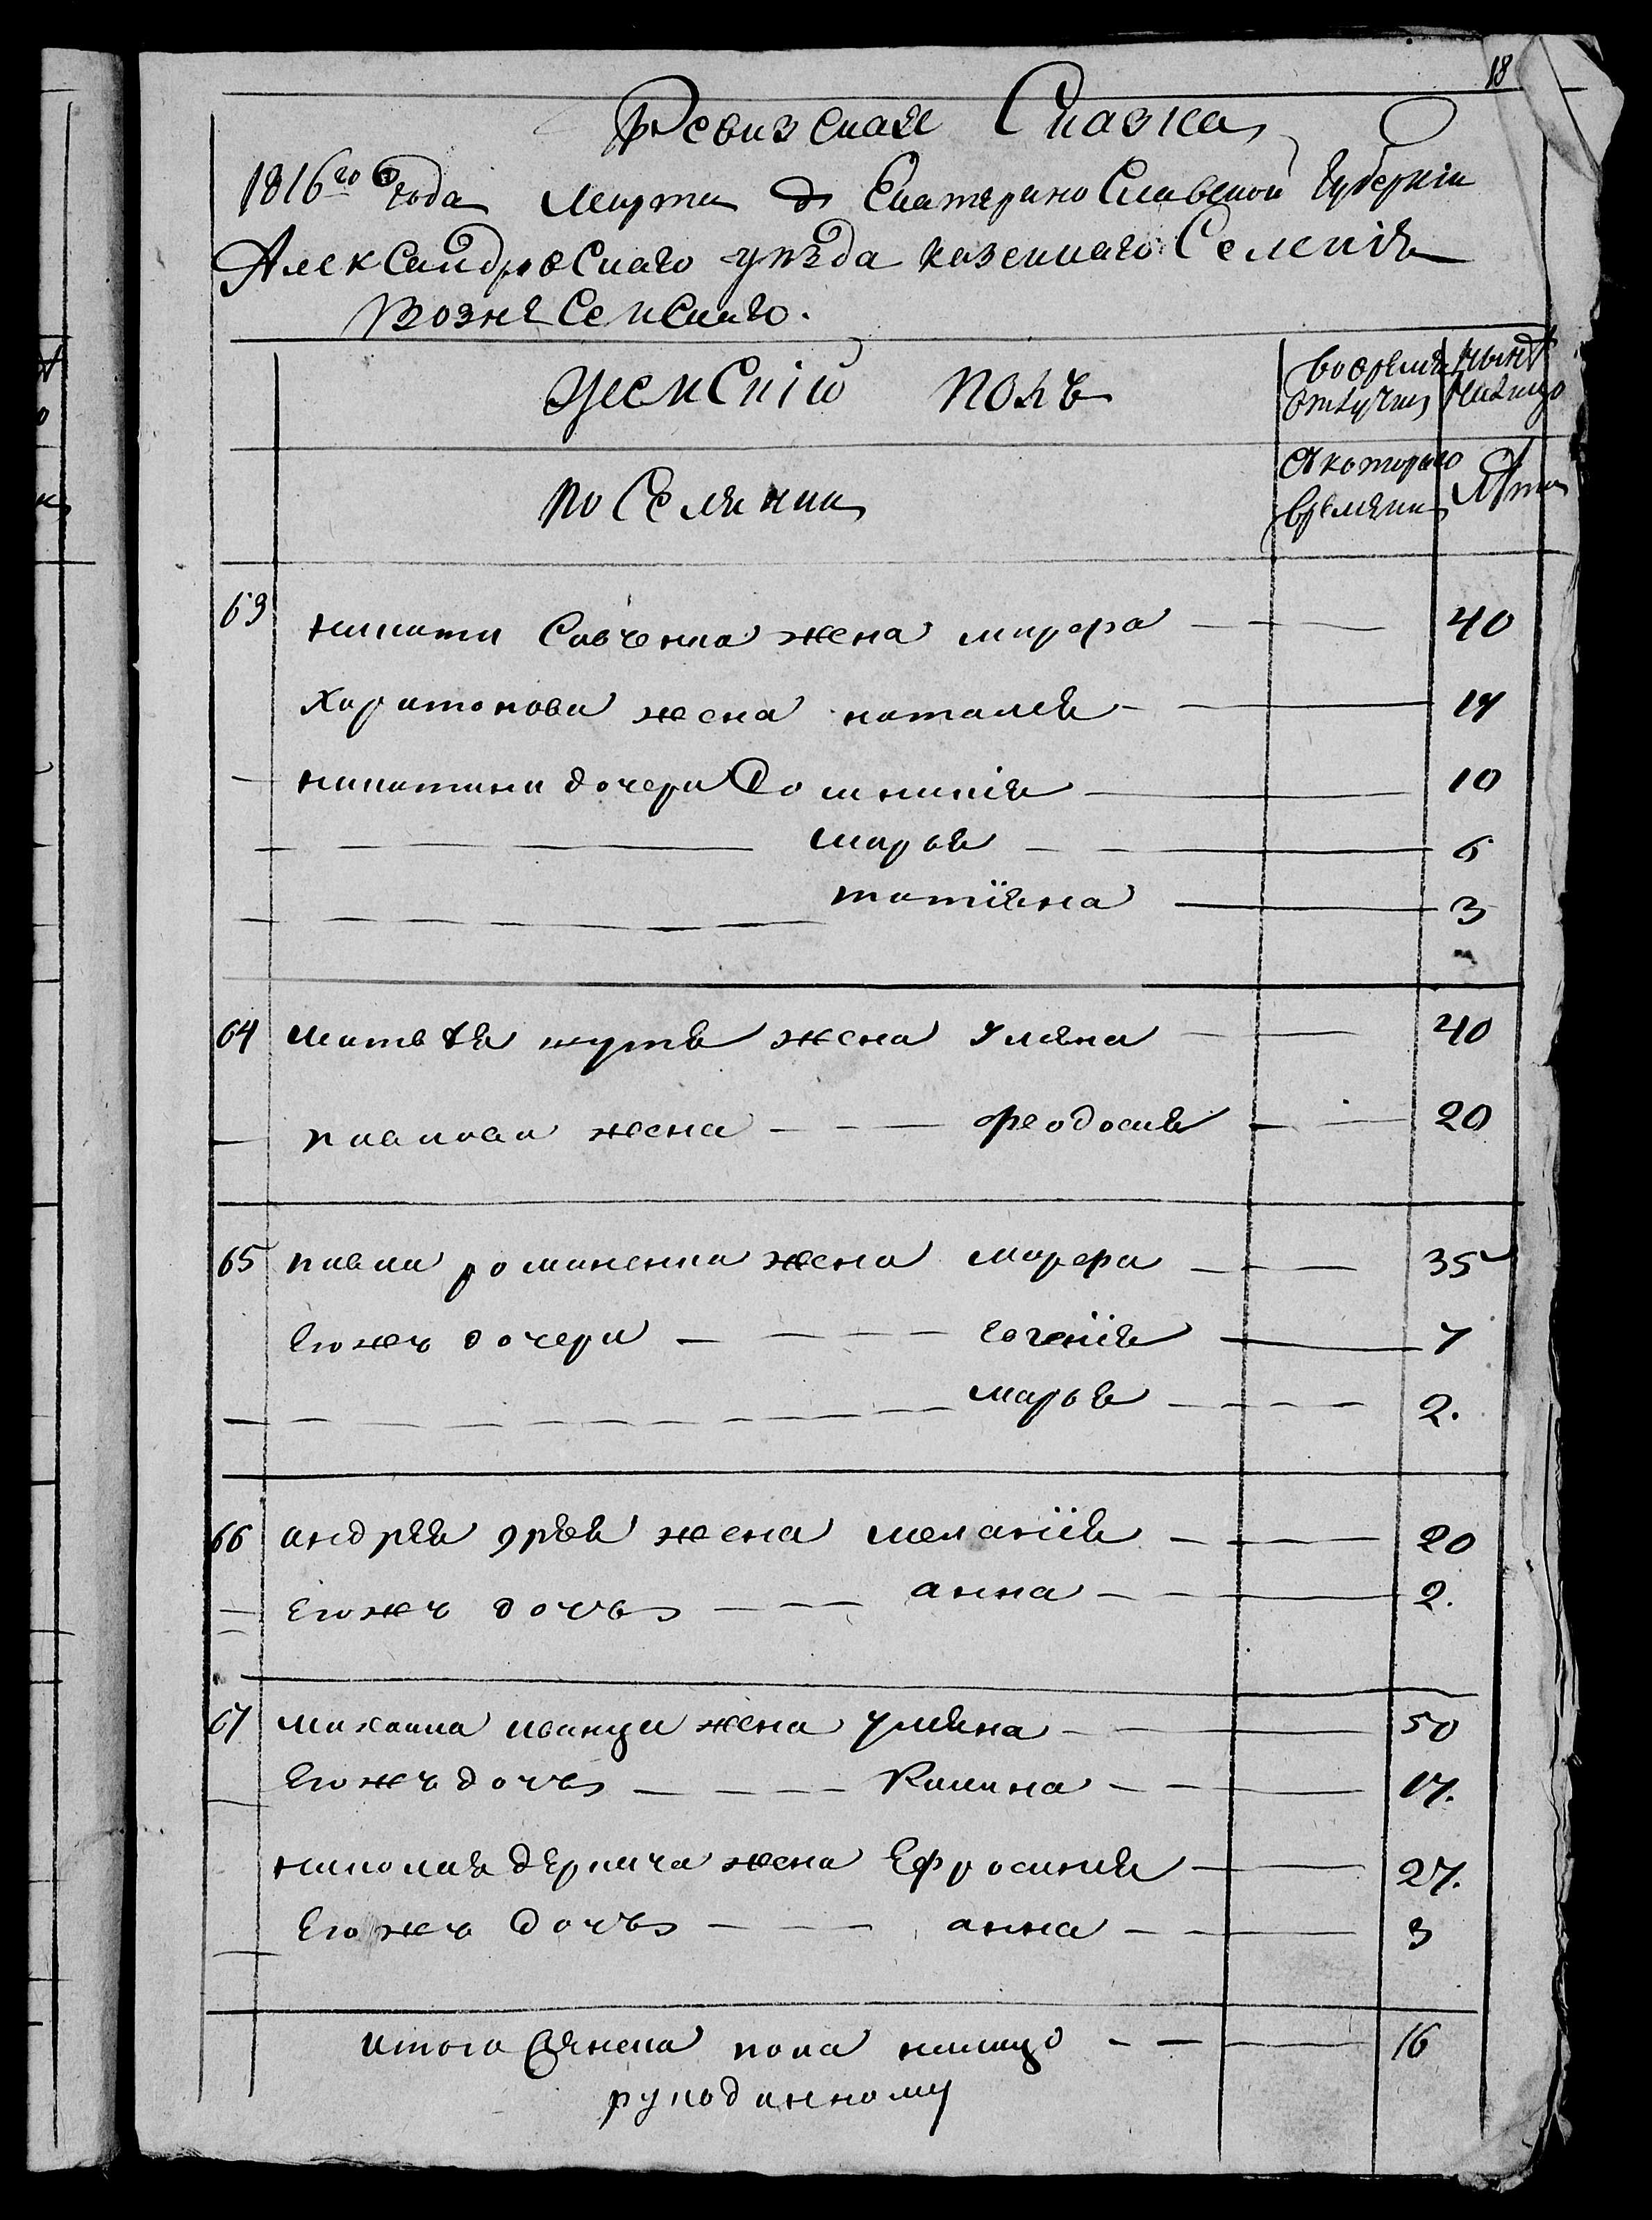 18
Ревизская Сказка
1816го года Марта дн Екатеринославской Губернiи
Александровскаго уѣзда казеннаго Селенiя
Вознесенскаго.
Женскiй полъ
во времян: отлучки
нынѣ налицо
Поселянки
Съ котораго времяни
Лѣта
63 никиты Савченка жена марфа 40
Харитонова жена наталiя 17
никитини дочери Домникiя 10
марья 6
татiяна 3
64 матвѣя жена уляна 40
павлова жена феодосия 20
65 павла романенка жена марфа 35
Егожъ дочери евгенiя 7
марья 2.
66 андрея жена меланiя 20
Егожъ дочь анна 2.
67 михаила иванци жена уляна 50
Егожъ дочь Килина 17.
николая деркача жена Ефросиния 27.
Егожъ дочь анна 3
итого женска пола налицо 16